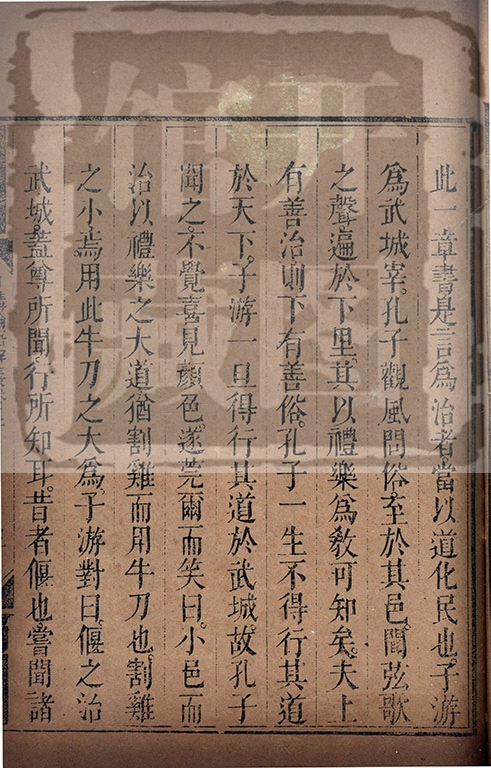 此一章書是言爲治者當以道化民也子游
爲武城宰孔子觀風問俗至於其邑聞弦歌
之聲遍於下里其以禮樂爲敎可知矣夫上
有善治則下有善俗孔子一生不得行其道
於天下子游一旦得行其道於武城故孔子
聞之不覺喜見顏色遂莞爾而笑曰小邑而
治以禮樂之大道猶割雞而用牛刀也割雞
之小焉用此牛刀之大爲子游對曰偃之治
武城蓋尊所聞行所知耳昔者偃也嘗聞諸